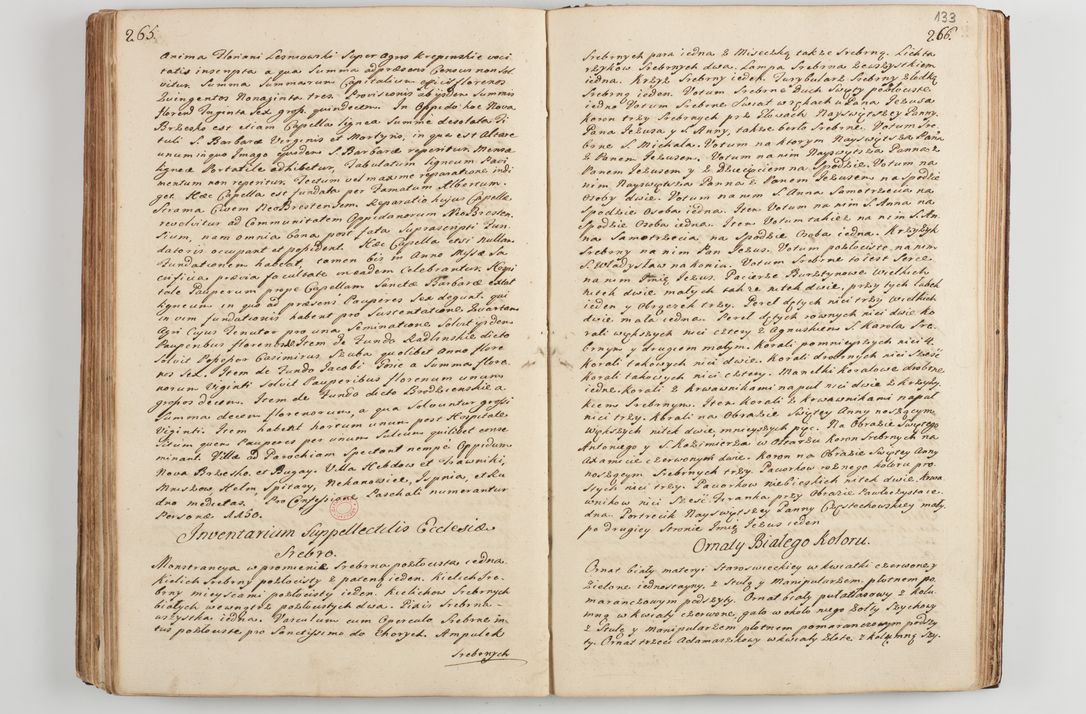 265.
Anima Floriani Lesnowski super Agros Krepinskie voci
tatis inscripta a qua Summa adpræsens Census non sol
vitur. Summa Summarum Capitalium efficit florenos
Zwingentos Nonaginta tres. Provisionis ab ijsdem Summis
floren Triginta Sex gros. quindecim. In Oppido hoc Nova
Brzesko est etiam Capella lignea Summe desolata Ti
tuli S. Barbaræ Virginis et Martyris, in qua est Altare
unum in quo Imago ejusdem S. Barbaræ reperitur. Mensa
lignea Portatile exhibetur. Tabulatum ligneum Pavi
mentum non reperitur. Tectum vel maxime reparatione indi
get. Hæc Capella est fundata per Famatum Albertum
Strama Civem NeoBrestensem. Reparatio hujus Capellæ
revolvitur ad Communitatem Oppidanorum NeoBresten
sium, nam omnia bona post fata Suprascripti Fun
datoris occupant et possident. Hæc Capella etsi nullam
Fundationem habeat, tamen bis in Anno Missæ Sa
crificia prævia facultate in eadem Celebrantur. Hospi
tale Pauperum prope Capellam Sanctæ Barbaræ extat
ligneum in quo ad præsens Pauperes Sex degunt, qui
in vim fundationis habent pro Sustentatione Quartam
Agri Cujus Tenutor pro una Seminatione Solvit ijsdem
Pauperibus florenos Item de Fundo Radlinskie dicto
Solvit Possessor Casimirus Szuba quolibet Anno flore
nos Sex. Item de Fundo Jacobi Gosie a Summa flore
norum Viginti Solvit Pauperibus florenum unum
grossos decem. Item de Fundo dicto Brodzienskie a
Summa decem florenorum, a qua Solvuntur grossi
Viginti. Item habent hortum unum pone Hospitale
situm quem Pauperes per unum Sulcum quilibet conse
minant. Villæ ad Parochiam Spectant nempe Oppidum
Nova Brzesko, et Bugay. Villa Hebdow et Srawniki,
Mniszow, Helen Spitary, Nekanowice, Jspnia, et Ru
dno medietas. Pro Confessione Paschali numerantur
Personæ
Inventarium Suppellectilis Ecclesiæ
Srebro.
Monstrancya w promienie Srebrna pozłocista iedna.
Kielich Srebrny pozłocisty z pateną ieden. Kielich Sre-
brny mieyscami pozłocisty ieden. Kielichow Srebrnych
białych wewnątrz pozłocistych dwa. Pixis Srebrna
wszystka iedna. Vasculum cum Operculo Srebrne in
tus pozłociste pro Sanctissimo do Chorych. Ampułek
Srebrnych
133
266
Srebrnych para iedna z Miseczką także Srebrną. Lichta
rzykow Srebrnych dwa. Lampa Srebrna ze wszystkiem
iedna. Krzyż Srebrny ieden. Turybularz Srebrny z łodką
Srebrną ieden. Votum Srebrne Duch Swięty pozłociste
iedno Votum Srebrne Swiat w rękach u Pana Jezusa
Koron trzy Srebrnych przy Głowach Nayswiętszey Panny,
Pana Jezusa y S. Anny, także berło Srebrne. Votum Sre
brne S. Michała. Votum na ktorym Nayswiętsza Panna
z Panem Jezusem. Votum na nim Nayswiętsza Panna z
Panem Jezusem y z Dziecięciem na Spodzie. Votum na
nim Nayswiętsza Panna z Panem Jezusem na Spodzie
Osoby dwie. Votum na nim S. Anna Samotrzecia na
Spodzie Osoba iedna. Item Votum na nim S. Anna na
Spodzie Osoba iedna. Item Votum takież na nim S. An
na Samotrzecia na Spodzie Osoba iedna. Krzyżyk
Srebrny na nim Pan Jezus. Votum pozłociste na nim
S. Władysław na koniu. Votum Srebrne to iest Serce
na nim Imię Jezus. Pacierze Bursztynowe Wielkich
nitek dwie małych także nitek dwie, przy tych Tabek
ieden y Obrączek trzy. Pereł dętych nici trzy Wielkich
dwie mała iedna. Pereł dętych rownych nici dwie ko
rali większych nici cztery z Agnuskiem S. Karola Sre
brnym y drugiem małym. Korali pomnieyszych nici 4.
Korali takowych nici dwie. Korali drobnych nici Szesć
Korali takoctych nici cztery. Manelki Koralowe drobne
iedne. Korali z krwawnikami na puł nici dwie z krzyży
kiem Srebrnym. Item Korali z krwawnikami na puł
nici trzy. Korali na Obrazie Swiętey Anny noszącym
większych nitek dwie, mnieyszych pięć. Na Obrazie Swiętego
Antoniego y S. Kazimierza w Ołtarzu Koron Srebrnych na
Adamscie czerwonym dwie. Koron na Obrazie Swiętey Anny
noszącym Srebrnych trzy. Paciorkow rożnego koloru pro
stych nici trzy. Paciorkow niebieskich nitek dwie. Krwa
wnikow nici Szesć. Firanka przy Obrazie Pawłoczystare
dna. Portrecik Nayswiętszey Panny Częstochowskiey mały,
po drugiey Stronie Imię Jezus ieden
Ornaty Białego Koloru.
Ornat biały materyi Staroswieckiey w kwiatki czerwone y
zielone iednostayny, z Stułą y Manipularzem, płotnem po
maranczowym podszyty. Ornat biały pułatłasowy z Kolu
mną w kwiaty czerwone, galą w około niego żołty Szychowy
z Stułą y Manipularzem płotnem pomaranczowym podszy
ty. Ornat trzeci Adamaszkowy w kwiaty złote z kolumną Szy.